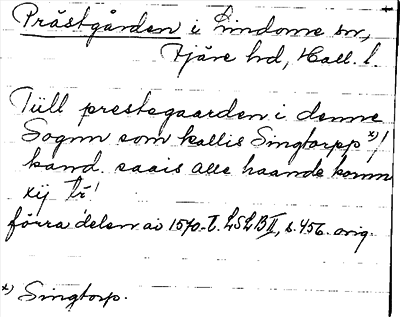 Prästgården i Lindome sn,
Fjäre hd, Hall. l.
Till prestegaarden i denne
Sognn som kallis Singtorpp x)/
kand saais alle haande komn
xij tr!
förra delen av 1570-t. LSLB II, s. 456. orig.
x) Singtorp.